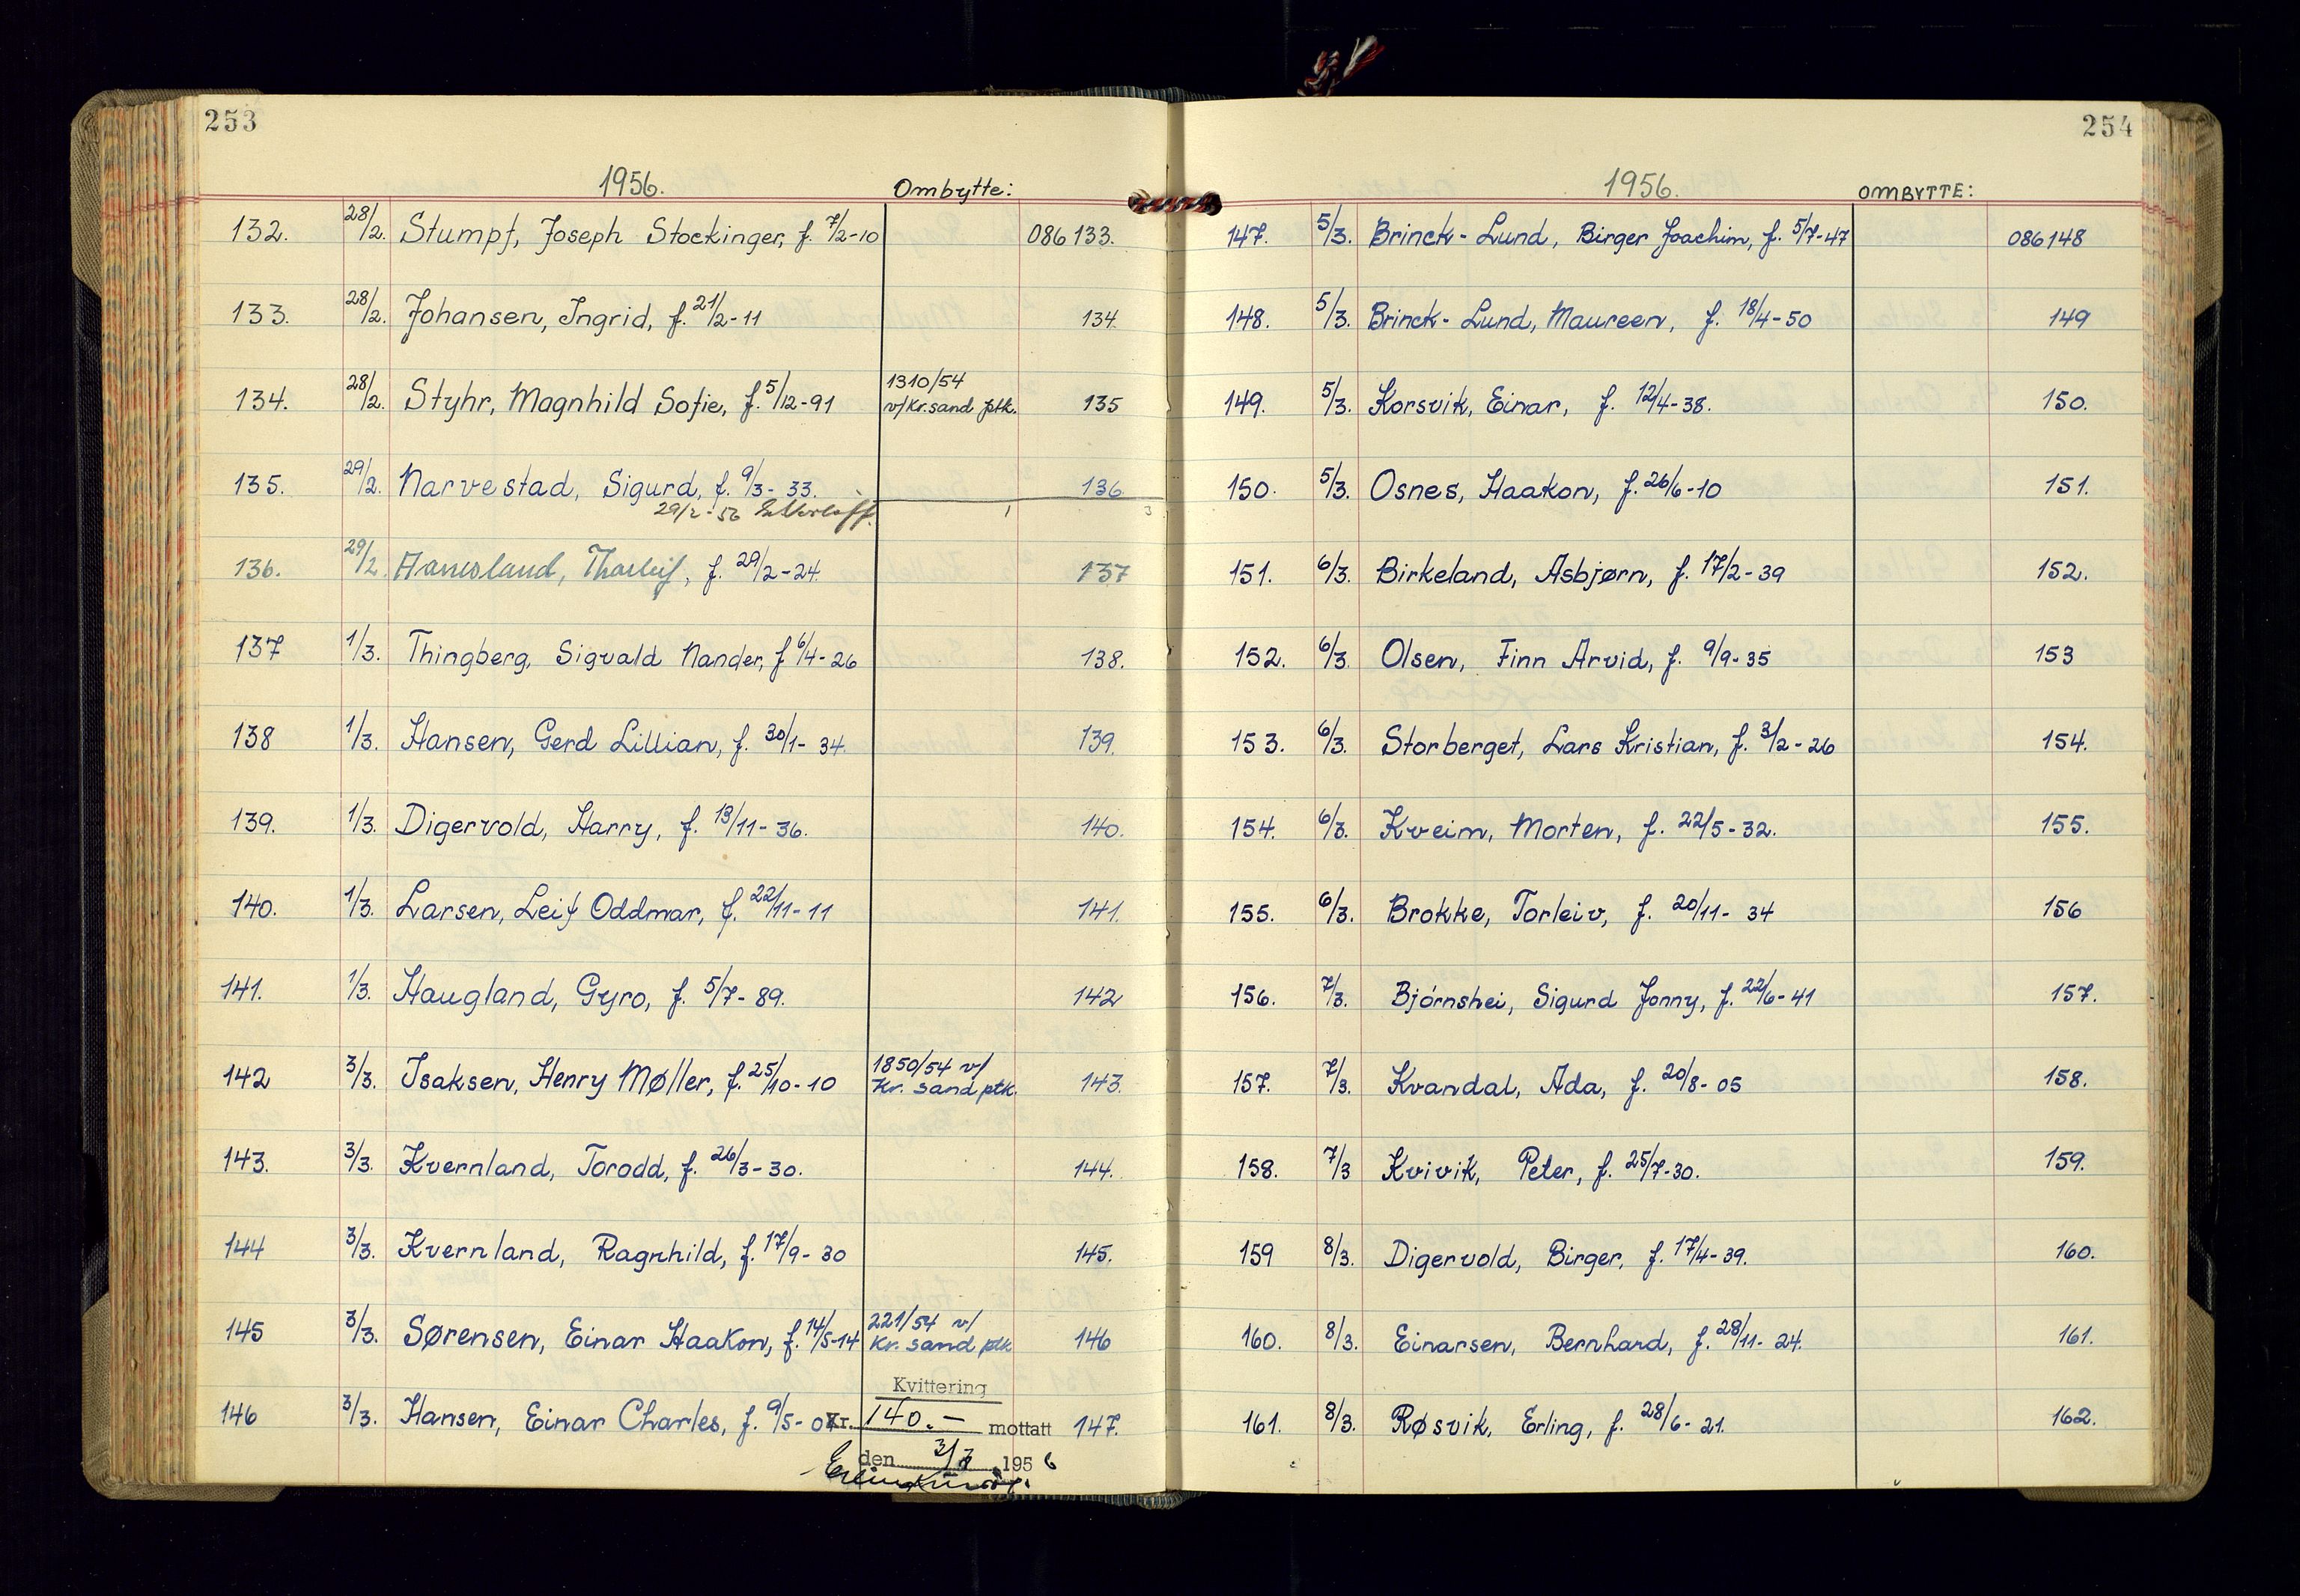 253
1956. Ombytte:
132. 28/2. Stumpf, Joseph Stockinger, f. 7/2-10 086133.
133. 28/2. Johansen, Ingrid, f. 21/2-11 134.
134. 28/2. Styhr, Magnhild Sofie, f. 5/12-91 1310/54 v/Kr.sand ptk. 135
135. 29/2. Narvestad, Sigurd, f. 9/3-33. 136
29/2-56
136. 29/2. Thorleif, f. 29/2-24. 137
137 1/3. Thingberg, Sigvald Nander, f 6/4-26 138.
138 1/3. Hansen, Gerd Lillian, f. 30/1-34. 139.
139. 1/3. Digervold, Harry, f. 13/11-36. 140.
140. 1/3. Larsen, Leif Oddmar, f. 22/11-11 141.
141. 1/3. Haugland, Gyro, f. 5/7-89. 142
142 3/3. Isaksen, Henry Møller, f. 25/10-10 1850/54 v/ Kr. sand ptk. 143.
143. 3/3. Kvernland, Torodd, f. 26/3-30. 144.
144 3/3. Kvernland, Ragnhild, f. 17/9-30 145.
145 3/3. Sørensen, Einar Haakon, f. 14/5-14 221/54 v/ Kr. sand ptk 146
Kvittering
146 3/3. Hansen, Einar Charles, f. 9/5-07 Kr. 140.- mottatt 147.
den 3/3 1956
254
1956. OMBYTTE:
147. 5/3. Brinck-Lund, Birger Joachim, f. 5/7-47 086148
148. 5/3. Brinck-Lund, Maureen, f. 18/4-50 149
149. 5/3. Korsvik, Einar, f. 12/4-38. 150.
150. 5/3. Osnes, Haakon, f. 26/6-10 151.
151. 6/3. Birkeland, Asbjørn, f. 17/2-39 152.
152. 6/3. Olsen, Finn Arvid, f. 9/9-35 153
153. 6/3. Storberget, Lars Kristian, f. 3/2-26 154.
154. 6/3. Kveim, Morten, f. 22/5-32. 155.
155. 6/3. Brokke, Torleiv, f. 20/11-34 156
156. 7/3. Bjørnshei, Sigurd Jonny, f. 22/6-41 157.
157. 7/3. Kvandal, Ada, f. 20/8-05 158.
158. 7/3 Kvivik, Peter, f. 25/7-30. 159.
159 8/3. Digervold, Birger, f. 17/4-39. 160.
160. 8/3. Einarsen, Bernhard, f. 28/11-24. 161.
161. 8/3. Røsvik, Erling, f. 28/6-21. 162.